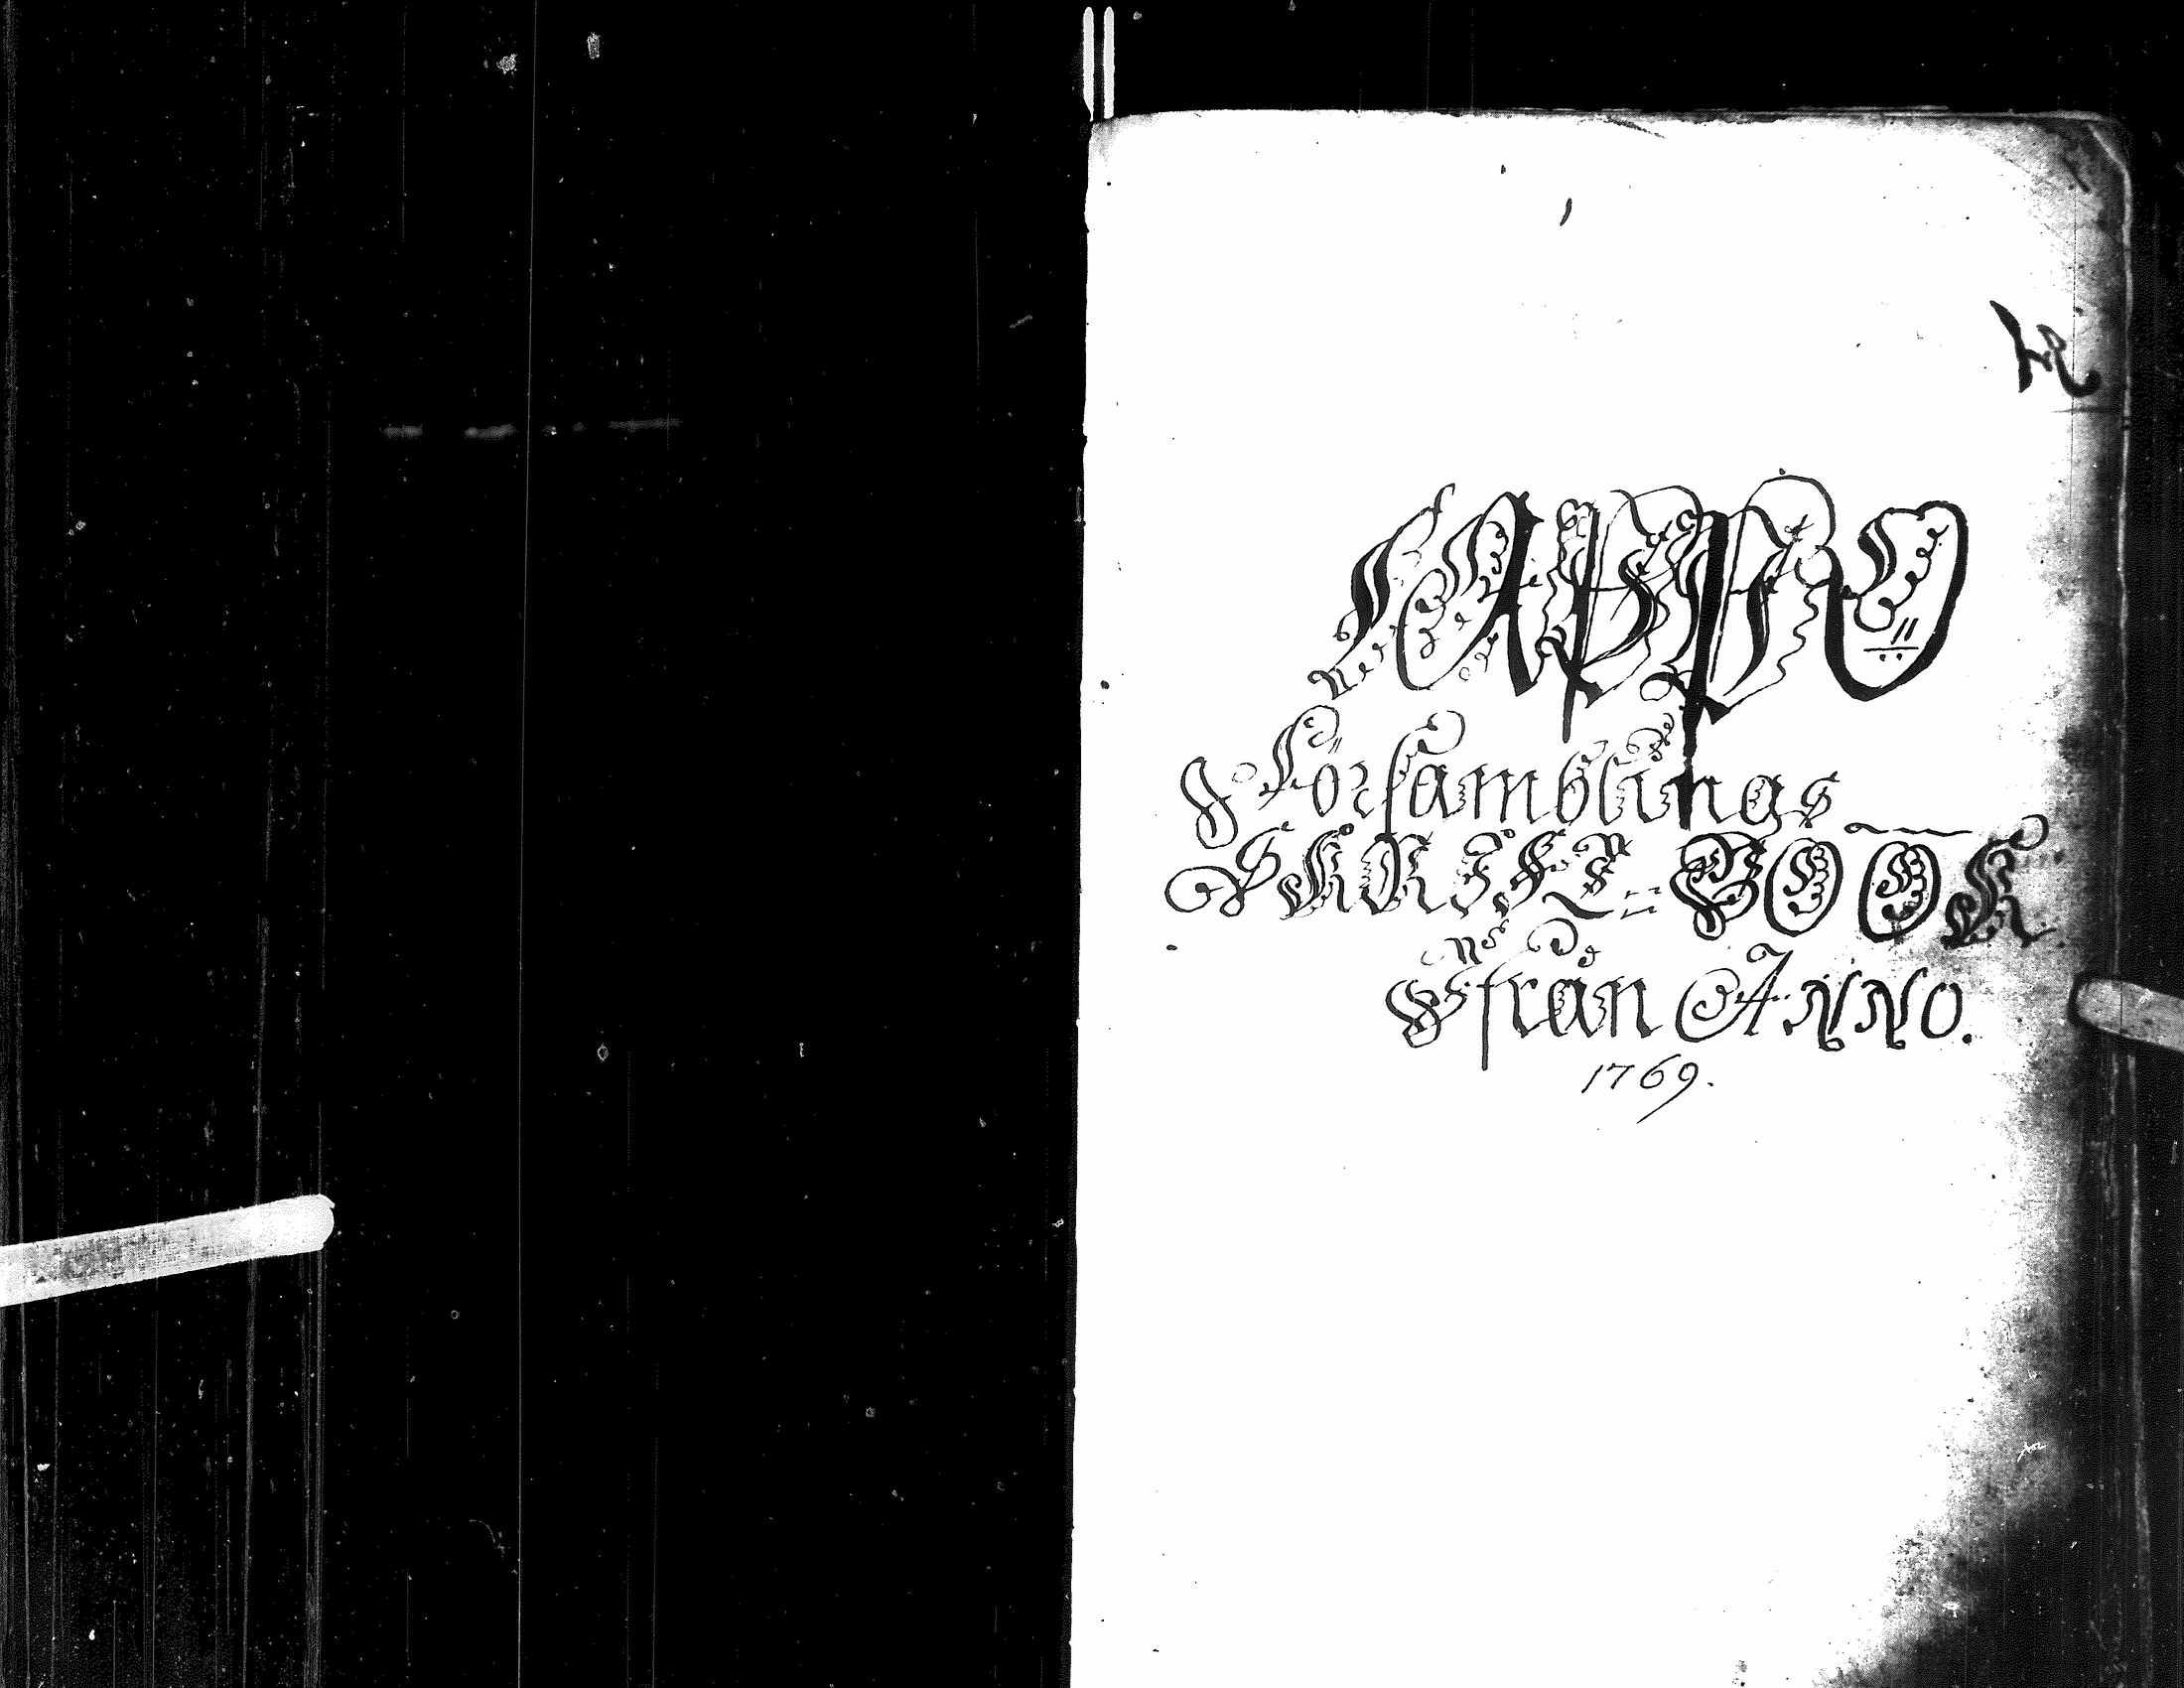 LAPPO
Församblings
SKRIFT=BOOK
från ANNO.
1769.